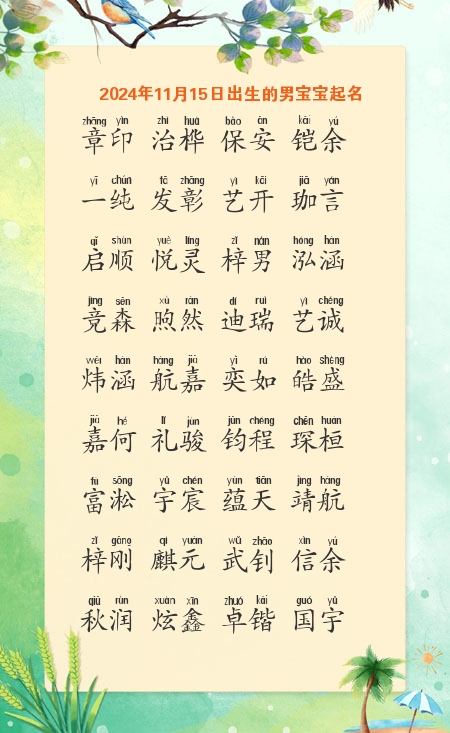 2024年11月15日出生的男宝宝起名
zhāng yìn zhì huà bǎo ān kǎi yú
章印 治桦 保安 铠余
yī chún fā zhāng yì kāi jiā yán
一纯 发彰 艺开 珈言
qǐ shùn yuè líng zǐ nán hóng hán
启顺 悦灵 梓男 泓涵
jìng sēn xù rán dí ruì yì chéng
竞森 煦然 迪瑞 艺诚
wěi hán háng jiā yì rú hào shèng
炜涵 航嘉 奕如 皓盛
jiā hé lǐ jùn jūn chéng chēn huán
嘉何 礼骏 钧程 琛桓
fù sōng yǔ chén yùn tiān jìng háng
富淞 宇宸 蕴天 靖航
zǐ gāng qí yuán wǔ zhāo xìn yú
梓刚 麒元 武钊 信余
qiū rùn xuàn xīn zhuó kǎi guó yǔ
秋润 炫鑫 卓锴 国宇